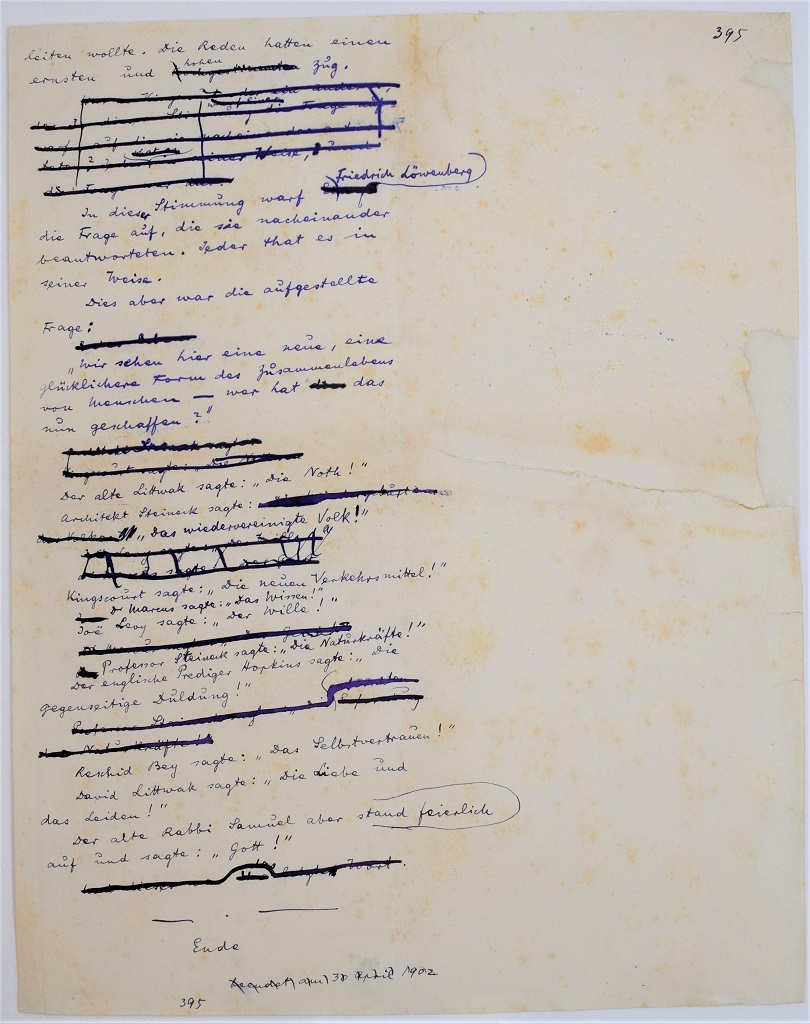 395
leiten wollte. Die Reden hatten einen
ernsten und hohen Zug.
Friedrich Löwenberg
In dieser Stimmung warf
die Frage auf, die sie nacheinander
beantworteten. Jeder that es in
seiner Weise.
Dies aber war die aufgestellte
Frage:
„Wir sehen hier eine neue, eine
glücklichere Form des Zusammenlebens
von Menschen — wer hat das
nun geschaffen?"
Der alte Littwak sagte: „Die Noth!"
Architekt Steineck sagte:
„Das wiedervereinigte Volk!"
Kingscourt sagte: „Die neuen Verkehrsmittel!"
Dr Marcus sagte: „Das Wissen!"
Joë Levy sagte: „Der Wille!"
Professor Steineck sagte: „Die Naturkräfte!"
Der englische Prediger Hopkins sagte: „Die
gegenseitige Duldung!"
Reschid Bey sagte: „Das Selbstvertrauen!"
David Littwak sagte: „Die Liebe und
das Leiden!"
Der alte Rabbi Samuel aber stand feierlich
auf und sagte: „Gott!"
Ende
am 30 April 1902
395